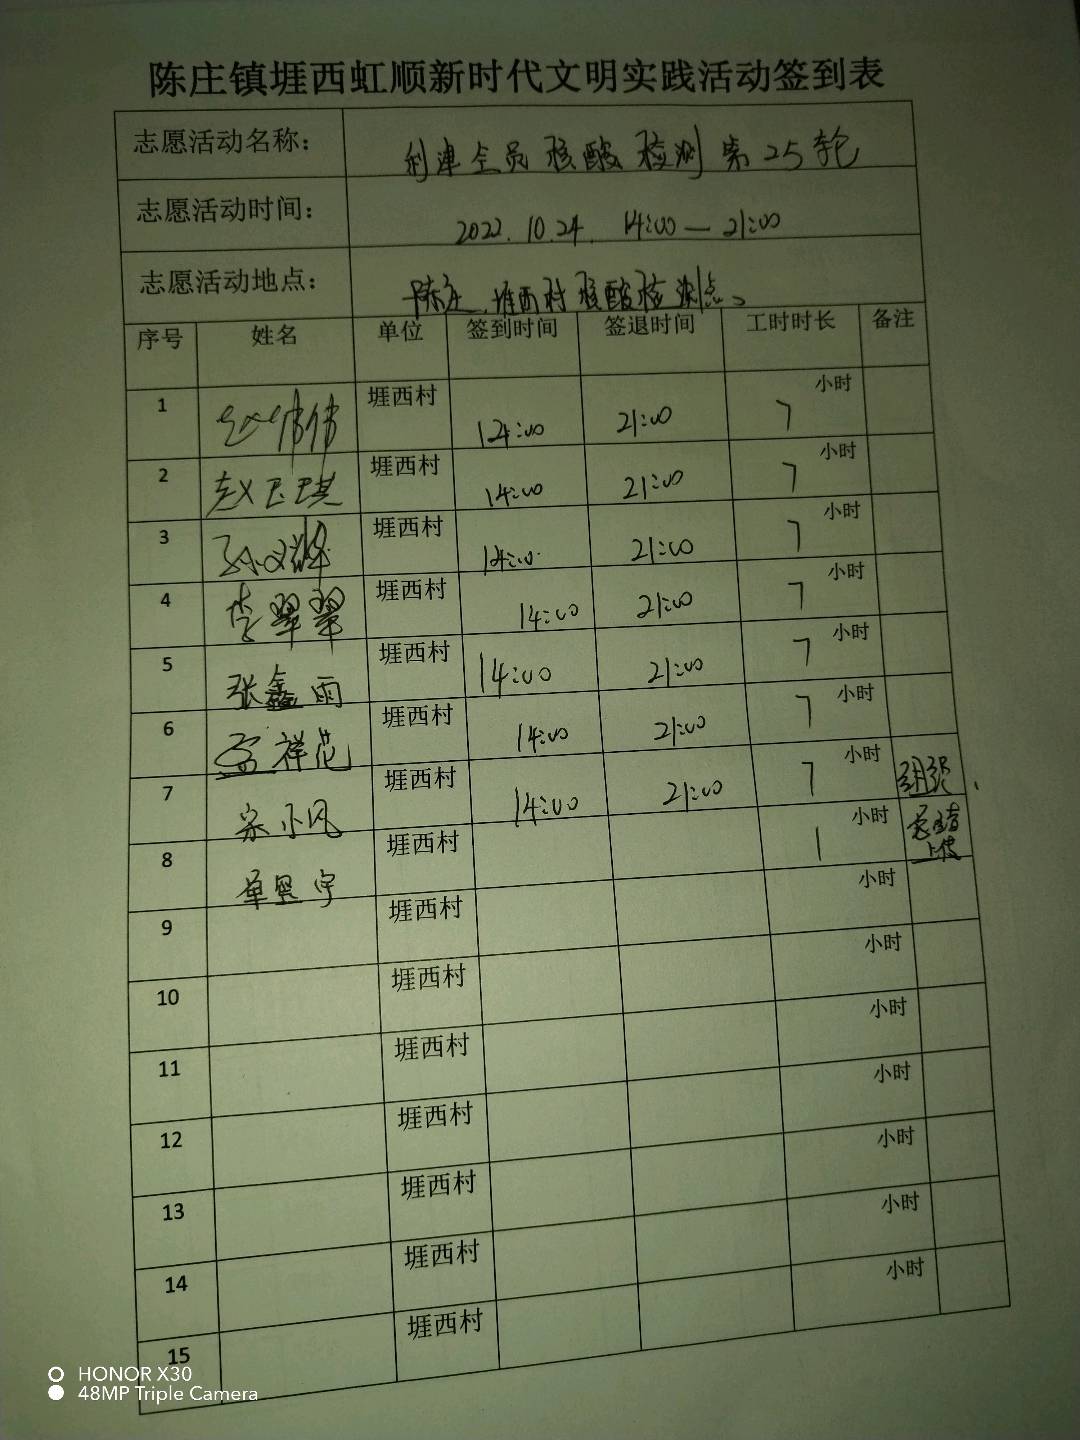 陈庄镇堐西虹顺新时代文明实践活动签到表
志愿活动名称： 利津全员核酸检测第25轮
志愿活动时间： 2022.10.24. 14:00—21:00
志愿活动地点： 陈庄.堐西村核酸检测点、
序号 姓名 单位 签到时间 签退时间 工时时长 备注
1 赵伟伟 堐西村 14:00 21:00 7小时
2 赵玉琪 堐西村 14:00 21:00 7小时
3 堐西村 14:00 21:00 7小时
4 李翠翠 堐西村 14:00 21:00 7小时
5 张鑫雨 堐西村 14:00 21:00 7小时
6 孟祥花 堐西村 14:00 21:00 7小时
7 宋小风 堐西村 14:00 21:00 7小时
8 单 宇 堐西村 1小时 上传
9 堐西村 小时
10 堐西村 小时
11 堐西村 小时
12 堐西村 小时
13 堐西村 小时
14 堐西村 小时
15 堐西村 小时
HONOR X30
48MP Triple Camera